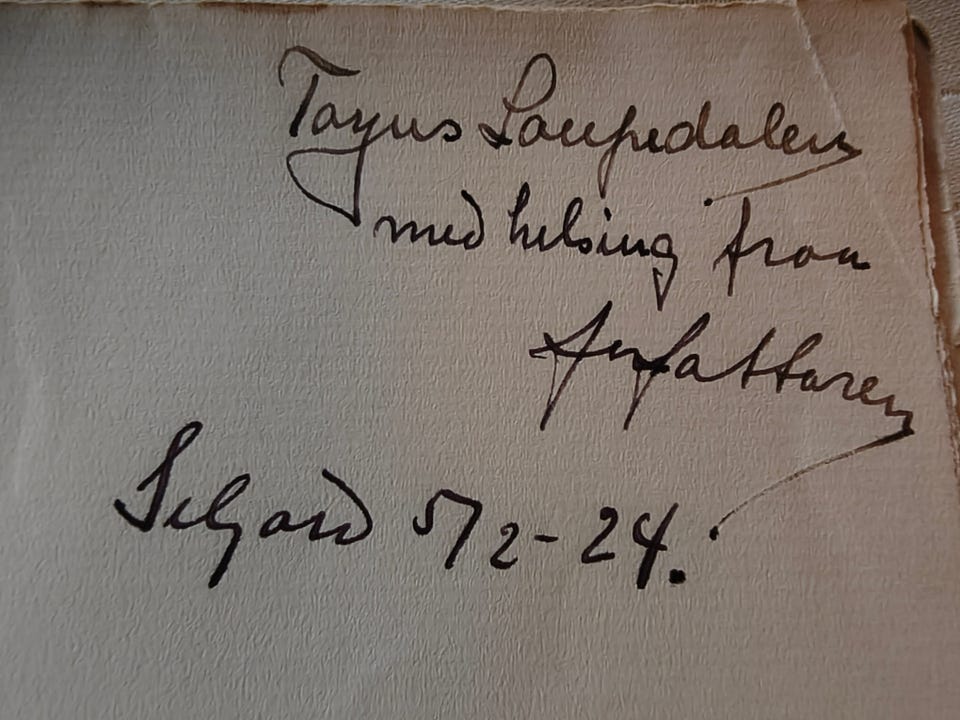 Targus Laupedalen
med helsing fraa
forfattaren
Seljord 5/2-24.